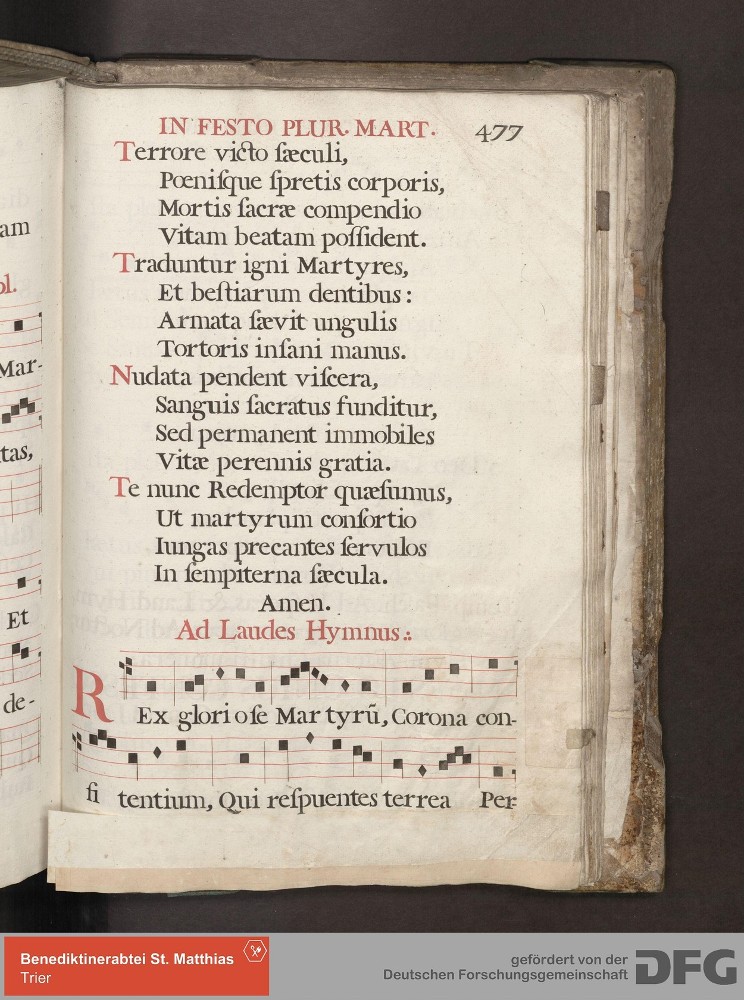 am
ol.
Mar-
tas,
Et
de-
IN FESTO PLUR. MART. 477
Terrore victo ſæculi,
Pœniſque ſpretis corporis,
Mortis ſacræ compendio
Vitam beatam poſſident.
Traduntur igni Martyres,
Et beſtiarum dentibus:
Armata ſævit ungulis
Tortoris inſani manus.
Nudata pendent viſcera,
Sanguis ſacratus funditur,
Sed permanent immobiles
Vitæ perennis gratia.
Te nunc Redemptor quæſumus,
Ut martyrum conſortio
Iungas precantes ſervulos
In ſempiterna ſæcula.
Amen.
Ad Laudes Hymnus.:
REx glorioſe Martyrũ, Corona con-
fitentium, Qui reſpuentes terrea Per-
Benediktinerabtei St. Matthias
Trier
gefördert von der
Deutschen Forschungsgemeinschaft
DFG